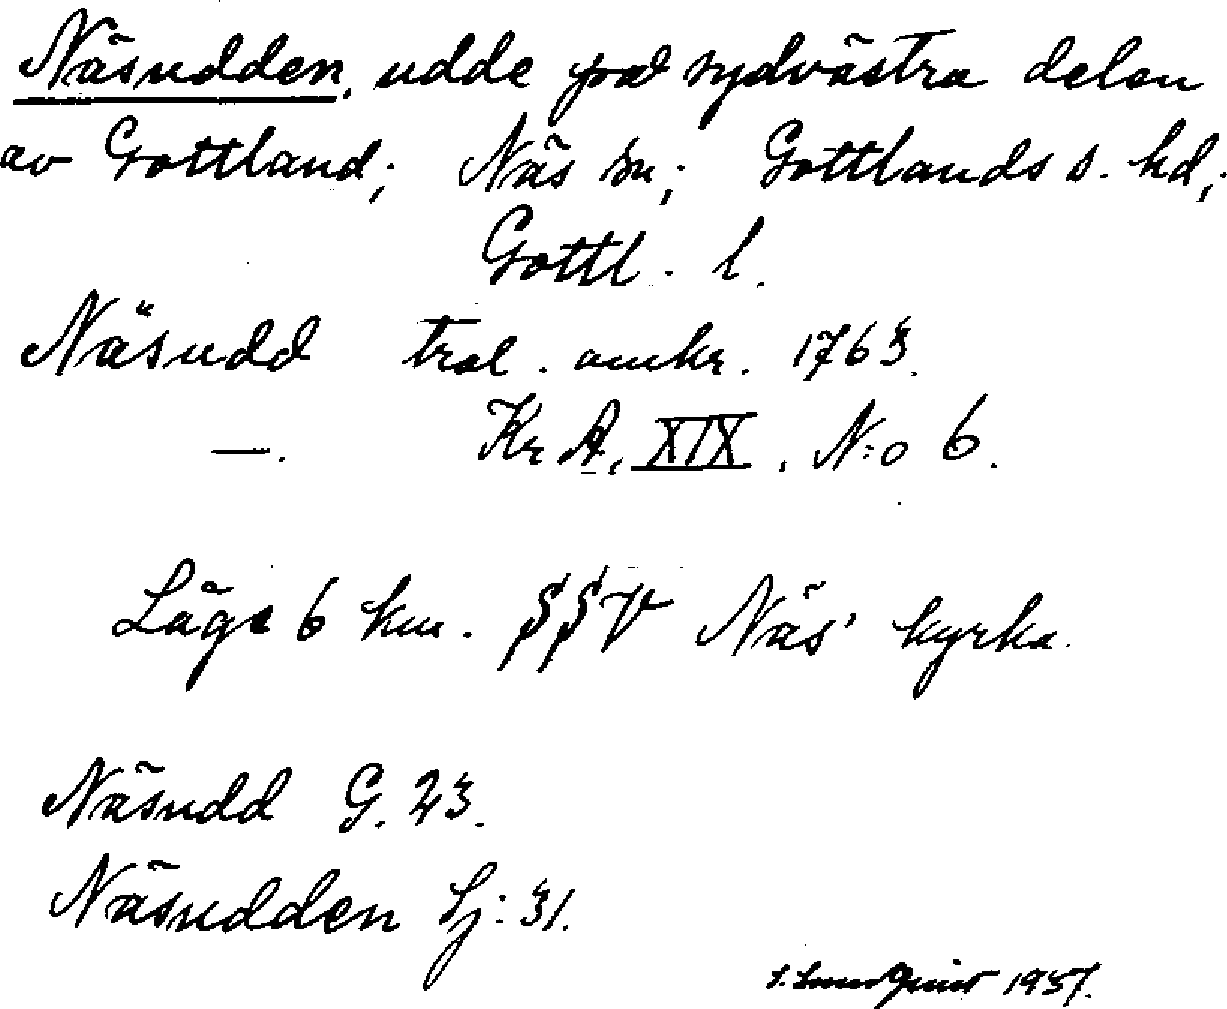 Näsudden, udde på sydvästra delen
av Gottland; Näs sn; Gottlands s. hd;
Gottl. l.
Näsudd trol. omkr. 1763.
—. Kr A, XIX, N:o 6.
Läge 6 km. SSV Näs' kyrka.
Näsudd G. 23.
Näsudden Sj: 31.
S. Lundquist 1937.